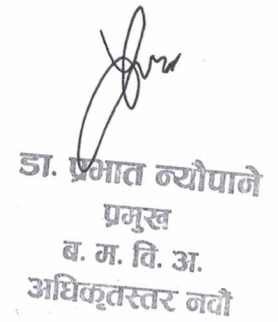 डा. प्रभात न्यौपाने
प्रमुख
ब. म. वि. अ.
अधिकृतस्तर नवौ